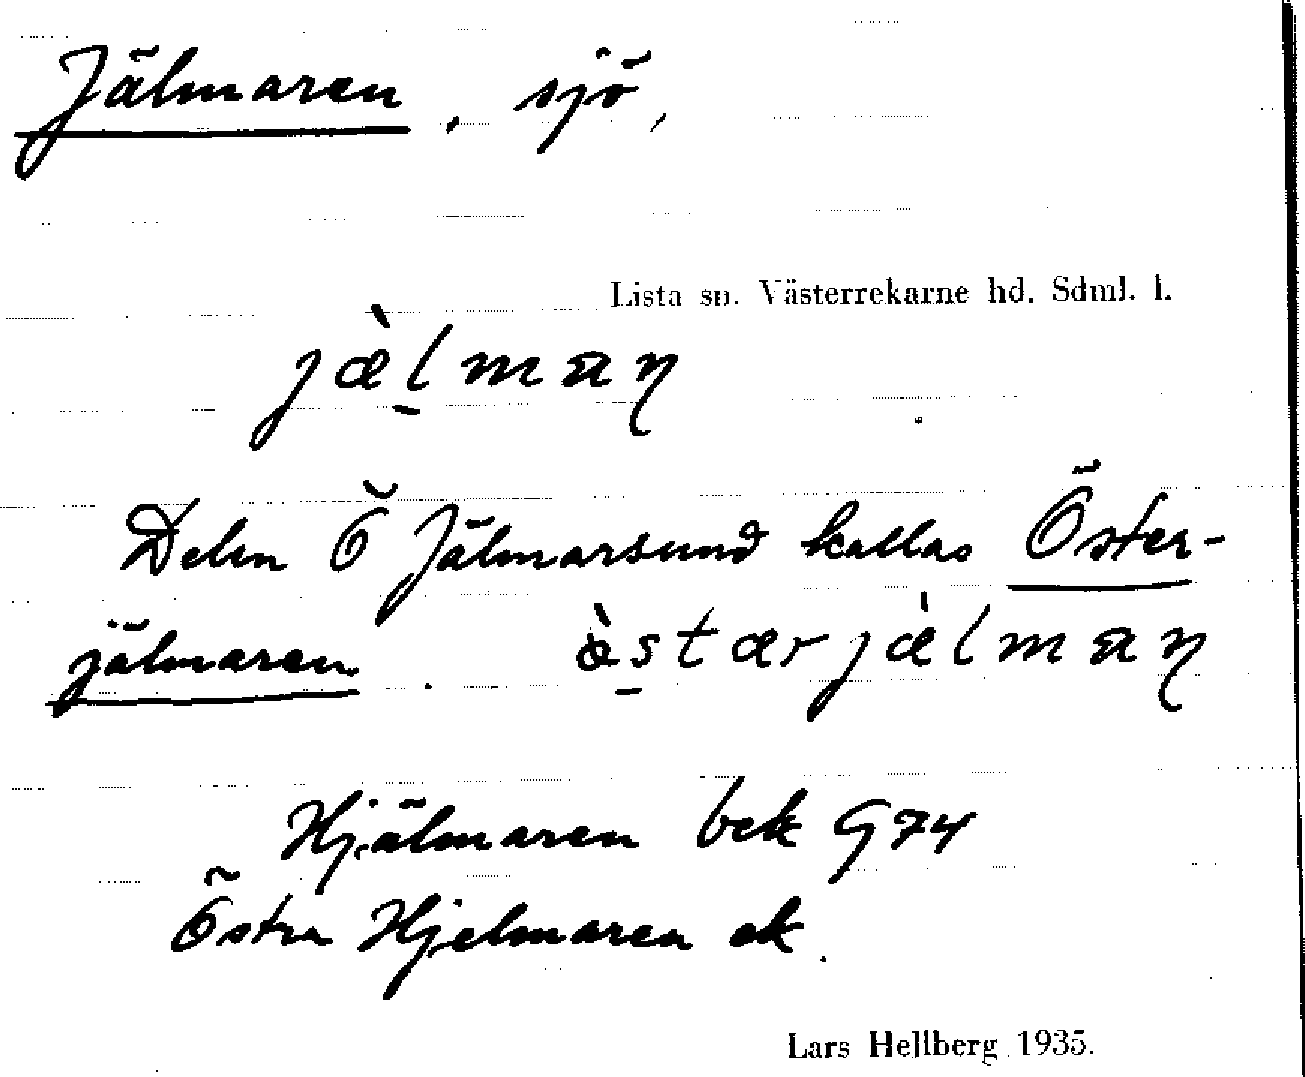 Jälmaren, sjö,
Lista sn. Västerrekarne hd. Sdml. l.
jæ̀l̠man
Delen Ö Jälmarsund kallas Öster-
jälmaren. ò̀s̠tærjæ̀lman
Hjälmaren bek G74
Östra Hjelmaren ek.
Lars Hellberg 1935.